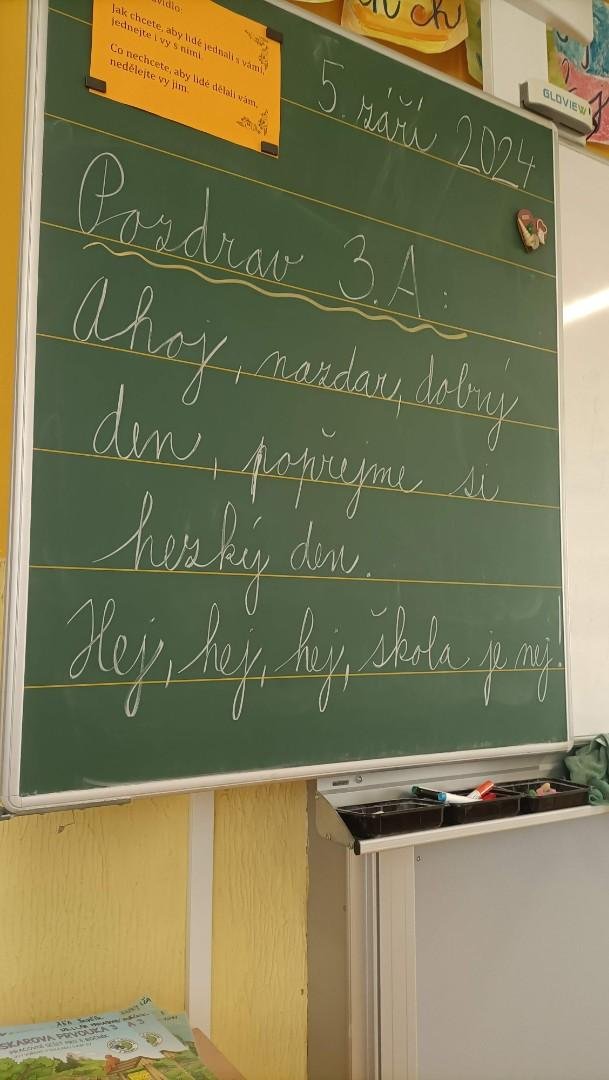 Jak chcete, aby lidé jednali s vámi,
jednejte i vy s nimi.
Co nechcete, aby lidé dělali vám,
nedělejte vy jim.
ch
GLOVIEW
5. září 2024
Pozdrav 3.A:
Ahoj, nazdar, dobrý
den, popřejme si
hezký den.
Hej, hej, hej, škola je nej!
ŠKAROVA PRVOUKA 3
PRACOVNÍ SEŠIT PRO 3. ROČNÍK